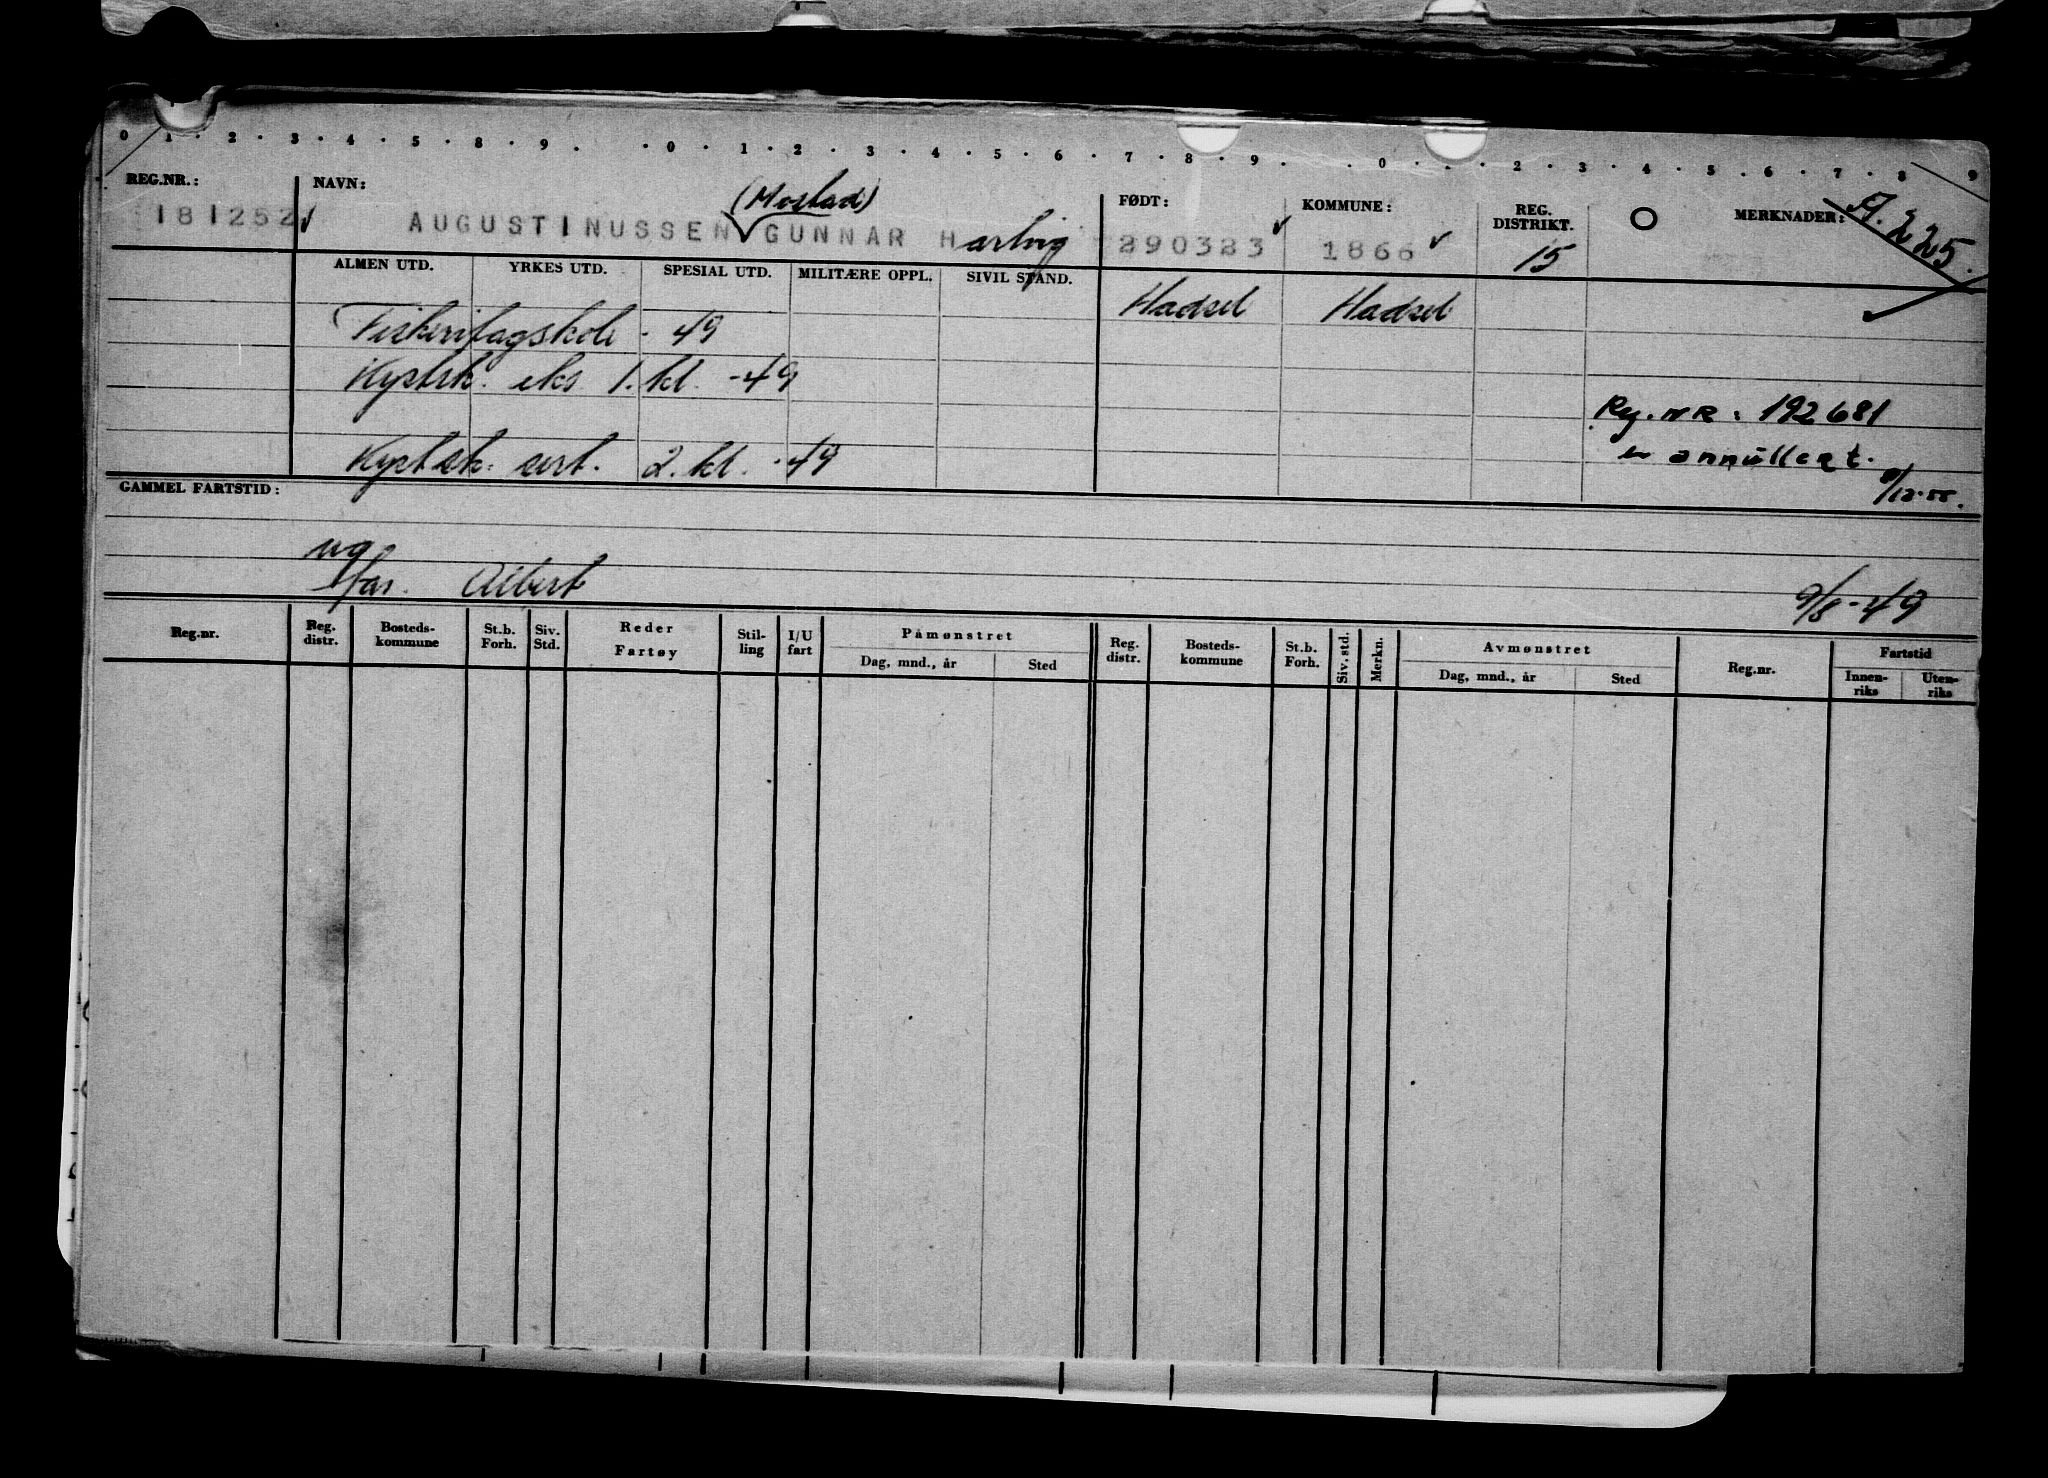 0 1 . 2 . 3 . 4 . 5 . 8 . 9 . . 0 . 1 . 2 . 3 . 4 . 5 . 6 . 7 . 8 . 9 . . 0 . . 2 . 3 . 4 . 5 . 6 . 7 . 8 . 9
REG.NR.: NAVN: (Mostad) FØDT: KOMMUNE: REG. DISTRIKT. O MERKNADER: A. 225.
181252 ✓ AUGUSTINUSSEN GUNNAR Hartvig 290323 ✓ 1866 ✓ 15
ALMEN UTD. YRKES UTD. SPESIAL UTD. MILITÆRE OPPL. SIVIL STAND.
Hadsel Hadsel
Fiskerifagskole - 49
Kystsk. eks 1. kl. - 49
Reg. NR: 192681
er annullert.
Kystsk. sert. 2. kl. - 49
GAMMEL FARTSTID: 8/12-55.
ug
Far. Albert 9/8-49
Reg.nr. Reg. distr. Bosteds-kommune St.b. Forh. Siv. Std. Reder Fartøy Stil-ling I/U fart Påmønstret Reg. distr. Bosteds-kommune St.b. Forh. Siv. std. Merkn. Avmønstret Reg.nr. Fartstid
Dag, mnd., år Sted Dag, mnd., år Sted Innen-riks Uten-riks